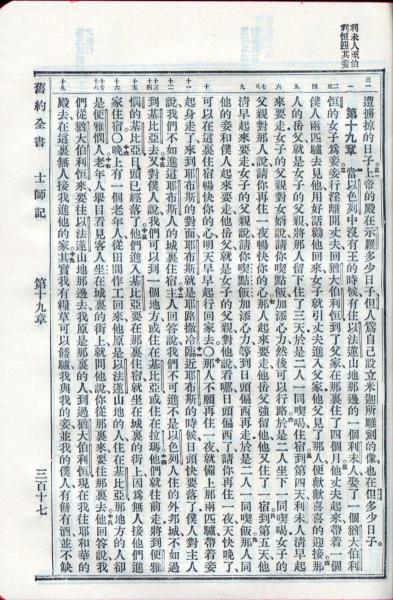 利未人至伯
利恆迎其妾
遭擄掠的日子上帝的殿在示羅多少日子但人爲自己設立米迦所雕刻的像也在但多少日子
第十九章 當以色列中沒有王的時候有住以法蓮山地那邊的一個利未人娶了一個猶大伯利
恆的女子爲妾妾行淫離開丈夫回猶大伯利恆到了父家在那裏住了四個月他丈夫起來帶着一個
僕人兩匹驢去見他用好話勸他回來女子就引丈夫進入父家他父見了那人便歡歡喜喜的迎接那
人的岳父就是女子的父親將那人留下住了三天於是二人一同喫喝住宿到第四天利未人清早起
來要走女子的父親對女婿說請你喫點飯加添心力然後可以行路於是二人坐下一同喫喝女子的
父親對那人說請你再住一夜暢快你的心那人起來要走他岳父強留他他又住了一宿到第五天他
清早起來要走女子的父親說請你喫點飯加添心力等到日頭偏西再走於是二人一同喫飯那人同
他的妾和僕人起來要走他岳父就是女子的父親對他說看哪日頭偏西了請你再住一夜天快晚了
可以在這裏住宿暢快你的心明天早早起行回家去○那人不願再住一夜就備上那兩匹驢帶着妾
起身走了來到耶布斯的對面耶布斯就是耶路撒冷臨近耶布斯的時候日頭快要落了僕人對主人
說我們不如進這耶布斯人的城裏住宿主人回答說我們不可進不是以色列人住的外邦城不如過
到基比亞去又對僕人說我們可以到一個地方或住在基比亞或住在拉瑪他們就往前走將到便雅
憫的基比亞日頭已經落了他們進入基比亞要在那裏住宿就坐在城裏的街上因爲無人接他們進
家住宿○晚上有一個老年人從田間作工回來他原是以法蓮山地的人住在基比亞那地方的人卻
是便雅憫人老年人舉目看見客人坐在城裏的街上就問他說你從那裏來要往那裏去他回答說我
們從猶大伯利恆來要往以法蓮山地那邊去我原是那裏的人到過猶大伯利恆現在我往耶和華的
殿去在這裏無人接我進他的家其實我有糧草可以餧驢我與我的妾並我的僕人有餅有酒並不缺
舊約全書 士師記 第十九章 三百十七